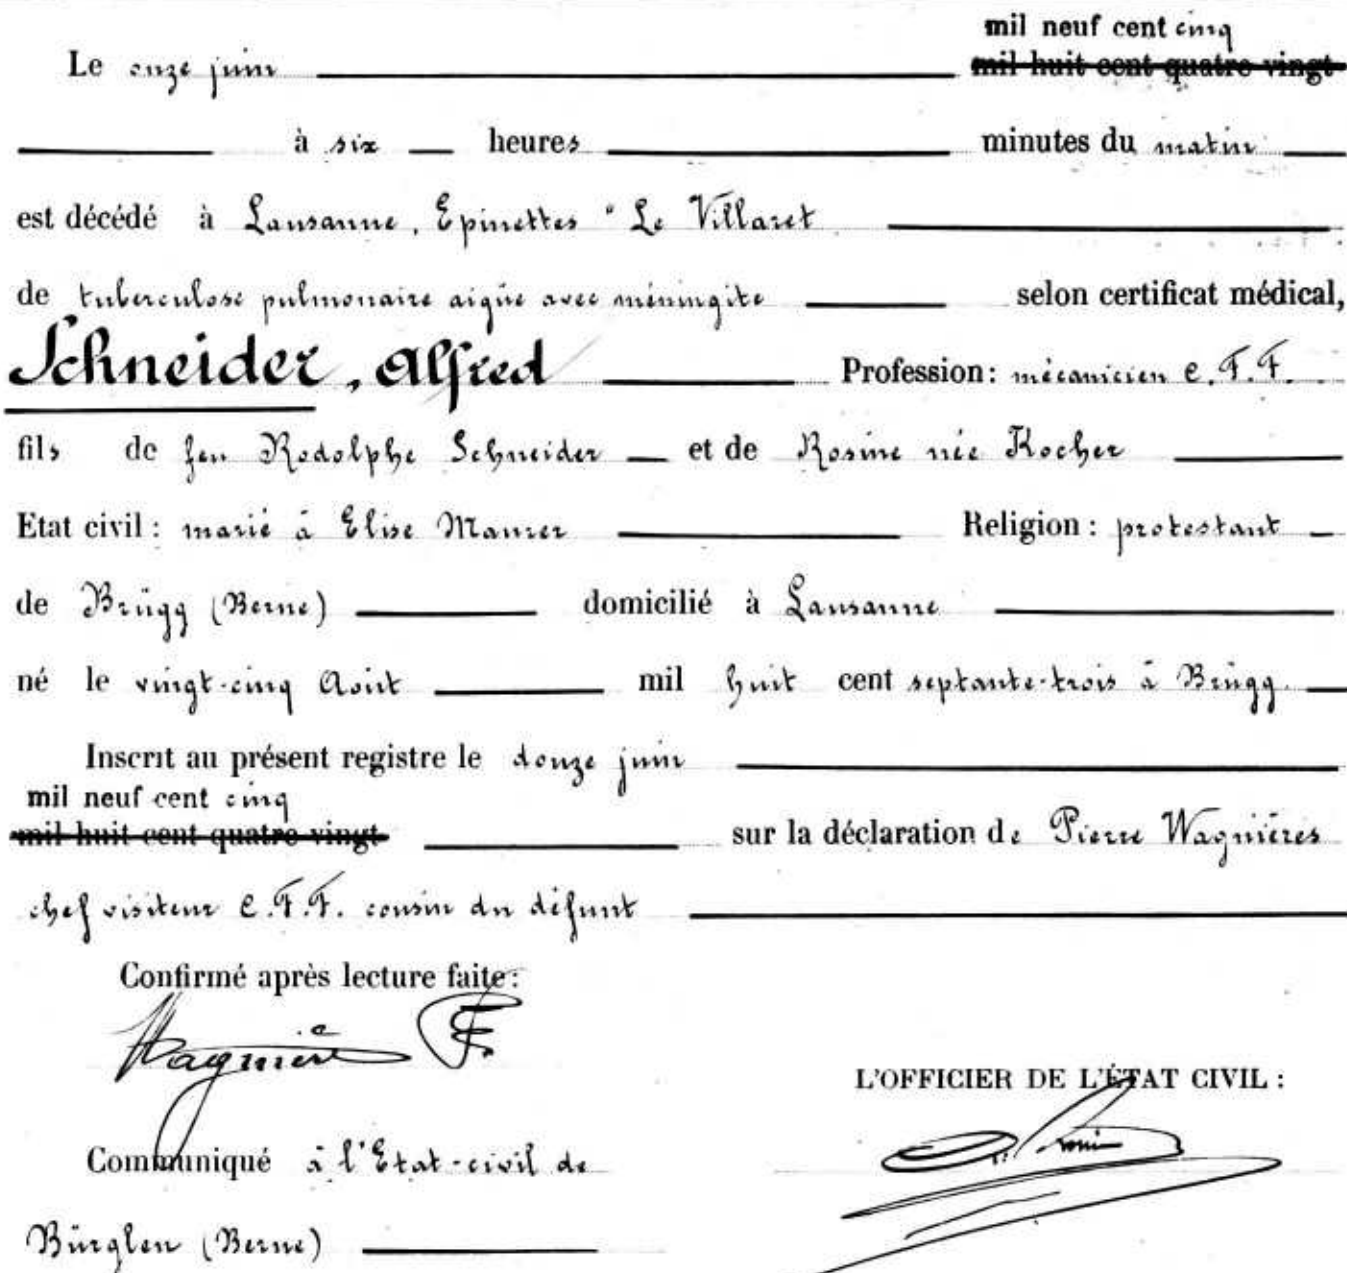 mil neuf cent cinq
Le onze juin mil huit cent quatre-vingt
à six heures minutes du matin
est décédé à Lausanne, Epinettes "Le Villaret
de tuberculose pulmonaire aigüe avec méningite selon certificat médical,
Schneider, Alfred Profession: mécanicien C.F.F.
fils de feu Rodolphe Schneider et de Rosine née Kocher
Etat civil : marié à Elise Maurer Religion : protestant
de Brügg (Berne) domicilié à Lausanne
né le vingt-cinq Août mil huit cent septante-trois à Brügg.
Inscrit au présent registre le douze juin
mil neuf cent cinq
mil huit cent quatre-vingt sur la déclaration de Pierre Wagnières
chef visiteur C.F.F. cousin du défunt
Confirmé après lecture faite :
Wagnière
L'OFFICIER DE L'ÉTAT CIVIL :
Communiqué à l'Etat-civil de
Bürglen (Berne)